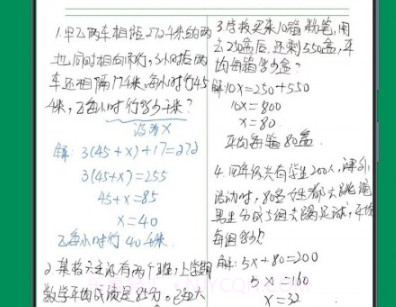 1.甲乙两车相距272千米的两
地同时相向而行,3小时后两
车还相隔17千米,每小时行45
千米,乙每小时行多少千米?
设为X
解: 3(45+x)+17=272
3(45+x)=255
45+x=85
x=40
乙每小时行40千米
3.学校买来10箱粉笔,用
去250盒后,还剩550盒,平
均每箱多少盒?
解10x=250+550
10x=800
x=80
平均每箱80盒
4.四年级共有学生200人,课外
活动时,80名女生都去跳绳
男生分成5组去踢足球,平均
每组多少?
解:5x+80=200
5x=160
x=32